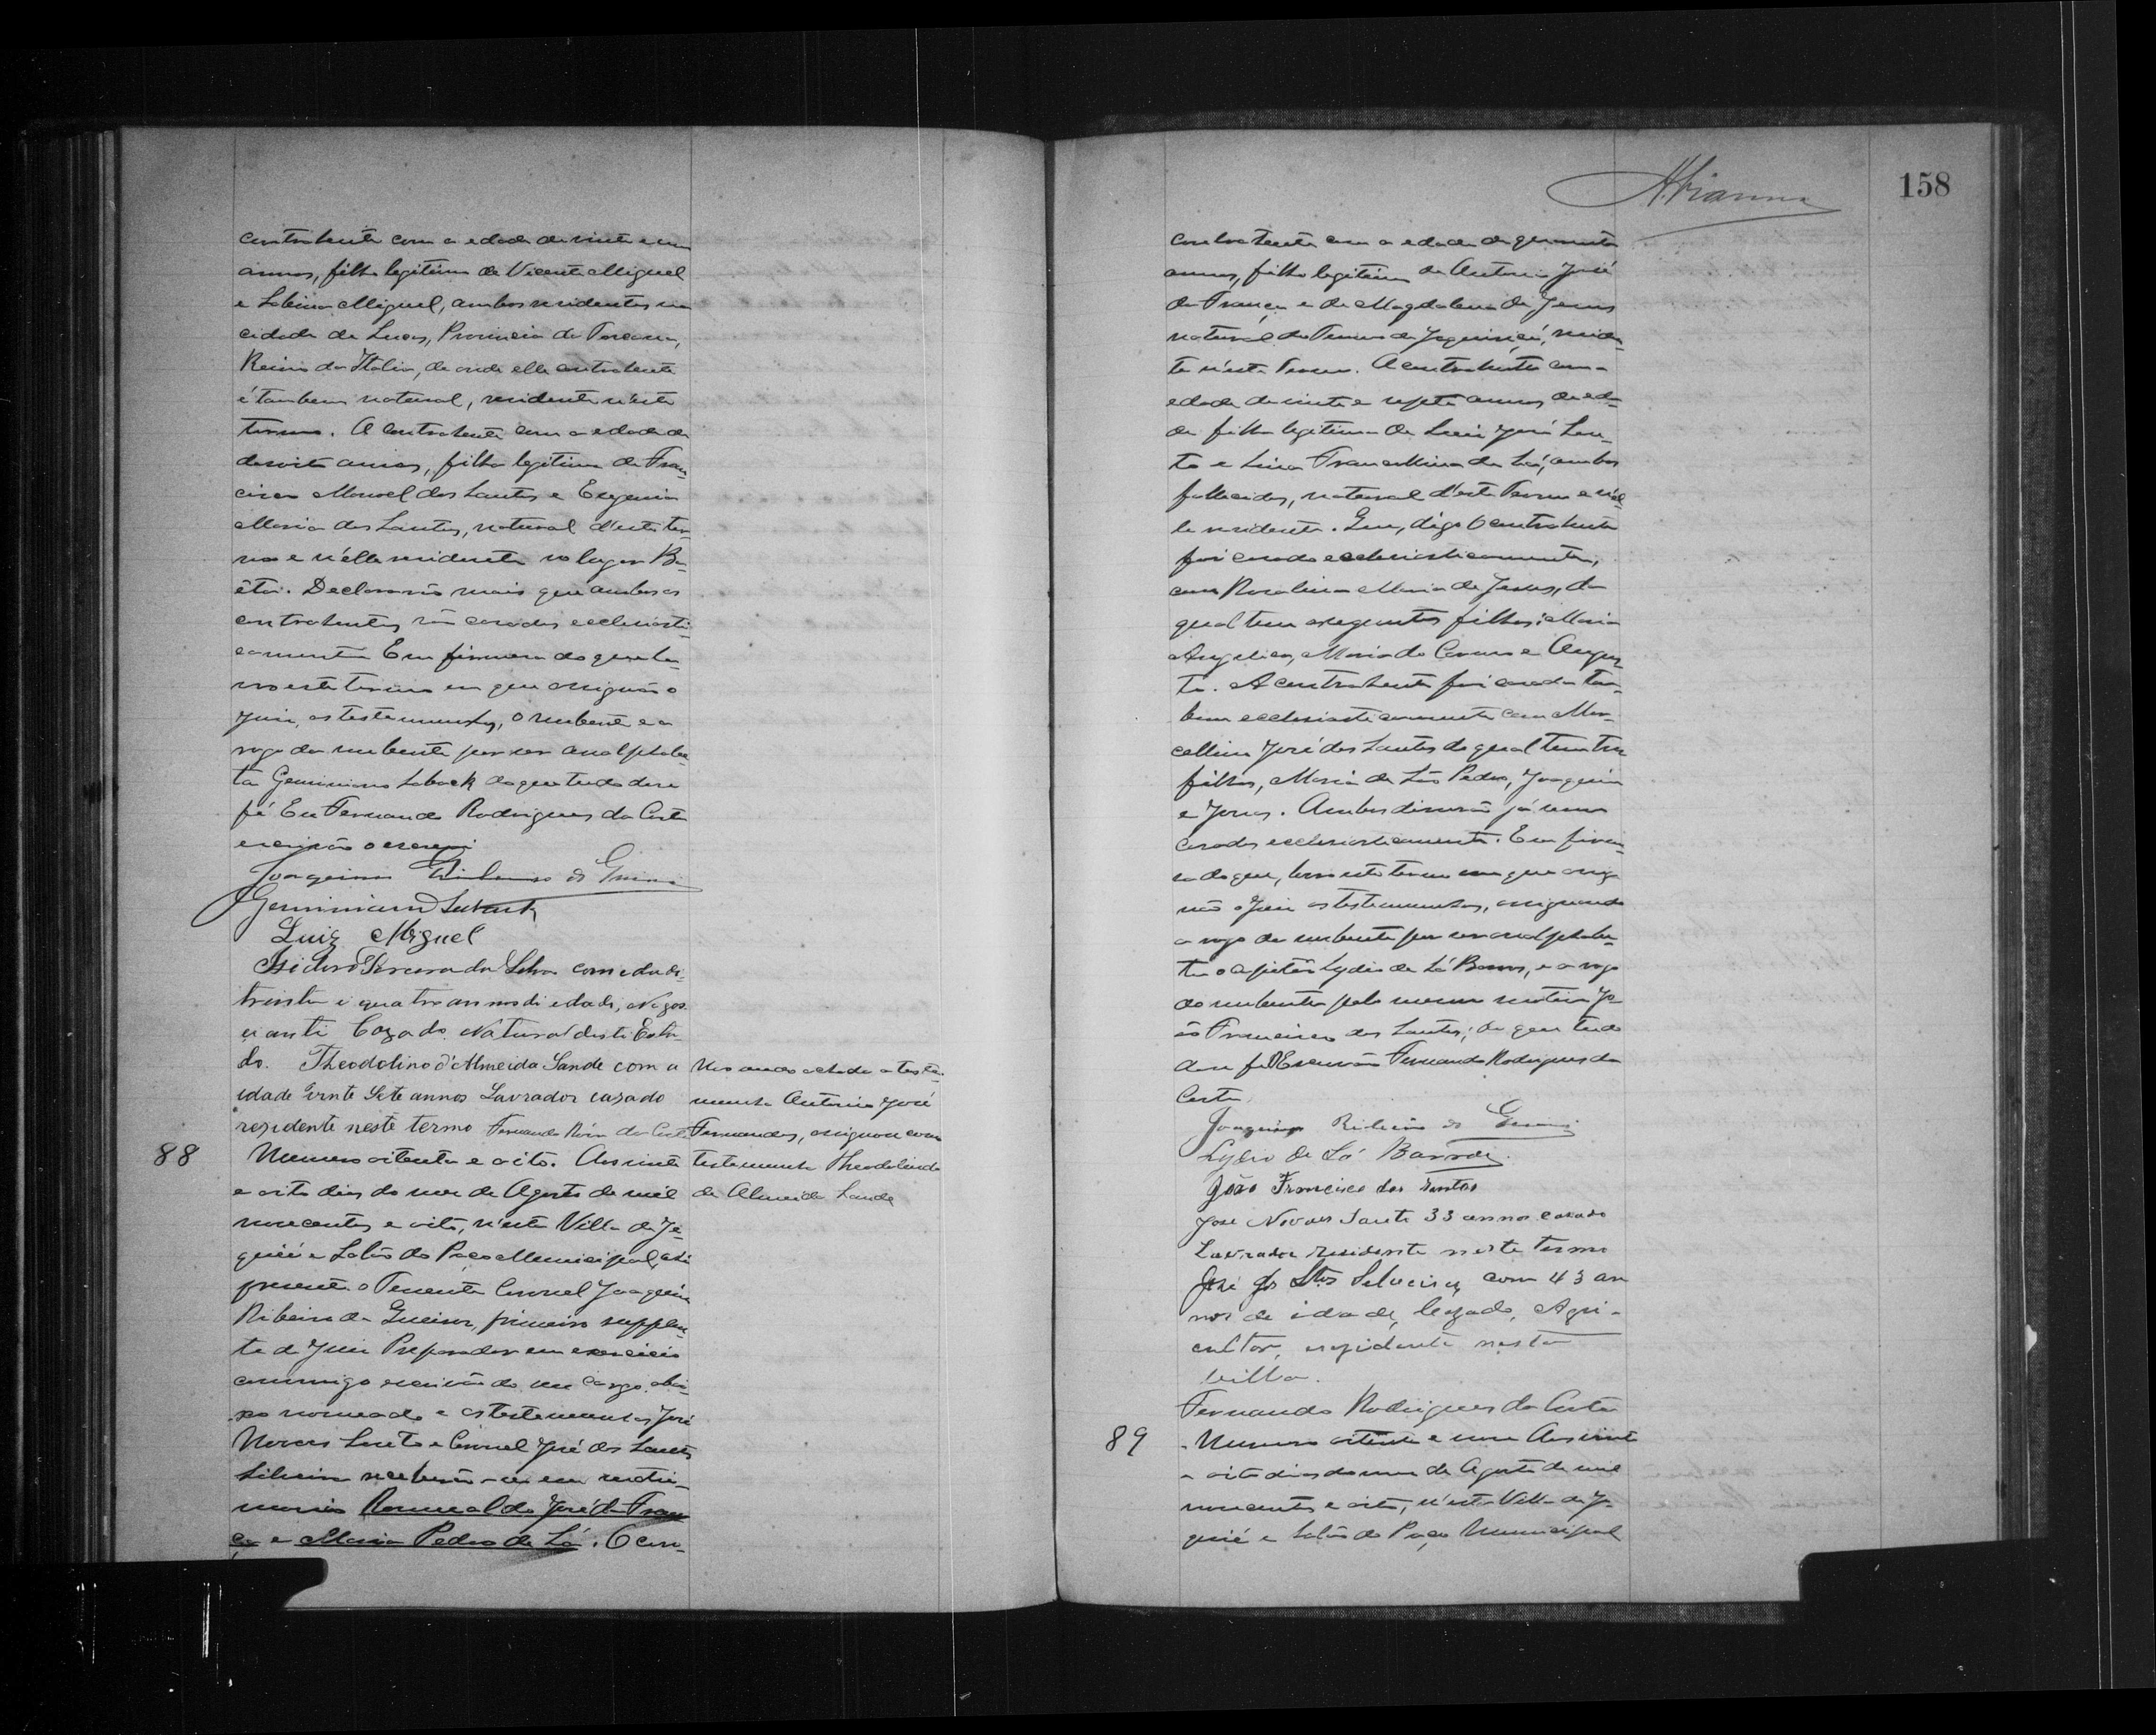 contrahente com a edade de vinte e um
annos, filho legitimo de Vicente Miguel
e Sabina Miguel, ambos residentes na
cidade de Lucas, Provincia de Toscana,
Reino da Italia, de onde elle contrahente
é tambem natural, residente n'este
termo. A contrahente com a edade de
desoito annos, filha legitima de Fran-
cisco Manoel dos Santos e Eugenia
Maria dos Santos, natural d'este ter-
mo e n'elle residente no lugar Ba-
êta. Declararão mais que ambos os
contrahentes são casados ecclesiasti-
camente. Em firmeza do que la-
vro este termo em que assignão o
Juiz, as testemunhas, o nubente e a
rogo da nubente por ser analphabe-
ta Geminiano Saback do que tudo dou
fé Eu Fernando Rodrigues da Costa
escrivão o escrevi
Joaquim Ribeiro de
Geminiano Saback
Luiz Miguel
Isidoro da Silva com edade
trinta i quatro annos di edade, Nigos
ciante Cazado Natural desti Esta
do. Theodolino d'Almeida Sande com a
idade Vinte Sete annos Lavrador casado
rezidente neste termo Fernando Róiz da Costa
Não a teste-
munha Antonio José
Fernandes, assignou como
testemunha Theodolindo
de Almeida Sande
88
Numero oitenta e oito. Aos vinte
e oito dias do mez de Agosto de mil
novecentos e oito, n'esta Villa de Je-
quié e Salão do Paço Municipal, ahi
presente o Tenente Coronel Joaquim
Ribeiro de primeiro supplen-
te do Juiz Preparador em exercicio
commigo escrivão do seu cargo abai-
xo nomeado e as testemunhas José
Novaes Souto e Coronel José dos Santos
Silveira receberão-se em matri-
monio Romualdo José da Fran-
ça e Maria Pedro de Sá. O con-
158
contrahente com a edade de quarenta
annos, filho legitimo de Antonio José
da França e de Magdalena de Jesus
natural do Termo de Jaguaquára, residen-
te n'este Termo. A contrahente com a
edade de vinte e sete annos de eda-
de filha legitima de Luiz José Sou-
to e Lina Francellina de Sá, ambos
fallecidos, natural d'este Termo e n'el-
le residente. Que, digo O contrahente
foi casado ecclesiasticamente,
com Rosalina Maria de Jesus, da
qual tem os seguintes filhos: Maria
Angelica, Maria do Carmo e Augus-
to. A contrahente foi casada tam-
bem ecclesiasticamente com Mar-
cellino José dos Santos do qual tem tres
filhos, Maria de São Pedro, Joaquim
e Jonas. Ambos disserão já serem
casados ecclesiasticamente. Em firme-
sa do que, lavro este termo em que assig-
não o Juiz as testemunhas, assignando
a rogo da nubente por ser analphabe-
ta o capitão Lydio de Sá Barros, e a rogo
do nubente pelo mesmo motivo Jo-
ão Francisco dos Santos; do que tudo
dou fé O Escrivão Fernando Rodrigues da
Costa
Joaquim Ribeiro de
Lydio de Sá Barros.
João Francisco dos Santos
José Novaes Souto 33 annos casado
Lavrador residente neste termo
José dos Stos Silveira, com 43 an
nos de idade, Cazado, Agri-
cultor, rezidente nesta
Villa.
Fernando Rodrigues da Costa
89
Numero oitenta e nove Aos vinte
e oito dias do mez de Agosto de mil
novecentos e oito, n'esta Villa de Je-
quié e Salão do Paço Municipal